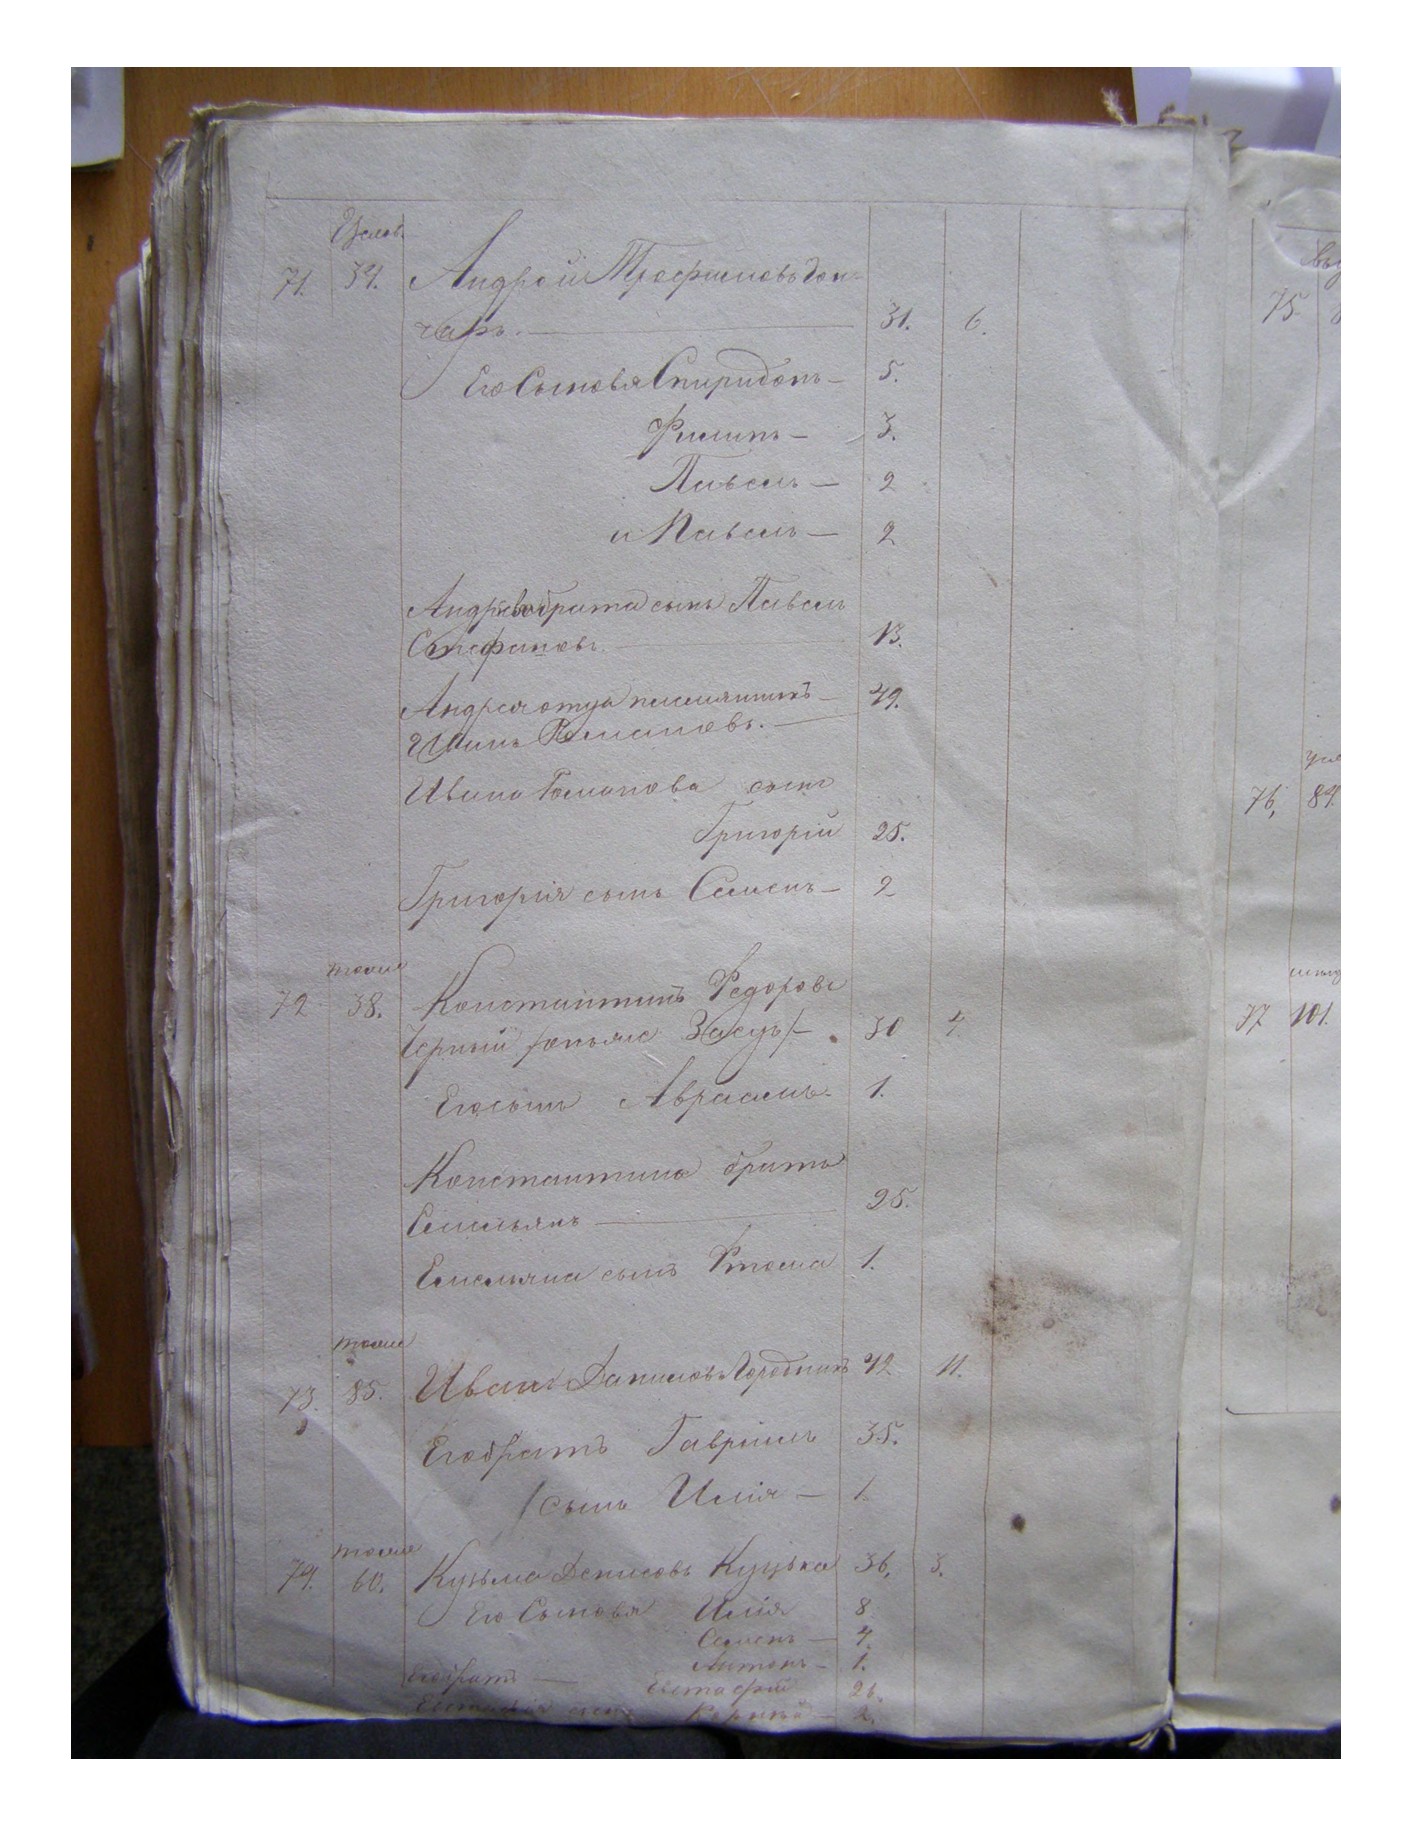 71. 34. Андрей Трофимовъ Гон-
чаръ. — 31. 6.
Его Сыновья Спиридонъ — 5.
Филипъ — 3.
Павелъ — 2
и Павелъ — 2
Андрея брата сынъ Павелъ
Стефановъ. — 13.
Андрея отца племянникъ — 49.
Иванъ Романовъ. —
Ивана Романова сынъ
Григорій 25.
Григорія сынъ Семенъ — 2
тоже
72 38. Константинъ Федоровъ
Черный /онъ же Заецъ/ — 30 4.
Его сынъ Авраамъ. 1.
Константина братъ
Емельянъ — 25.
Емельяна сынъ Фтома 1.
тоже
73. 85. Иванъ Даниловъ Городникъ 42 11.
Его братъ Гавріилъ 35.
/сынъ Илія — 1.
тоже
74. 60. Кузьма Денисовъ Куцька 36, 3.
Его Сыновья Илія 8
Семенъ — 4.
Антонъ — 1.
Его братъ — Евстафій 26.
Евстафія сынъ — 2.
75.
76, 84.
77 101.